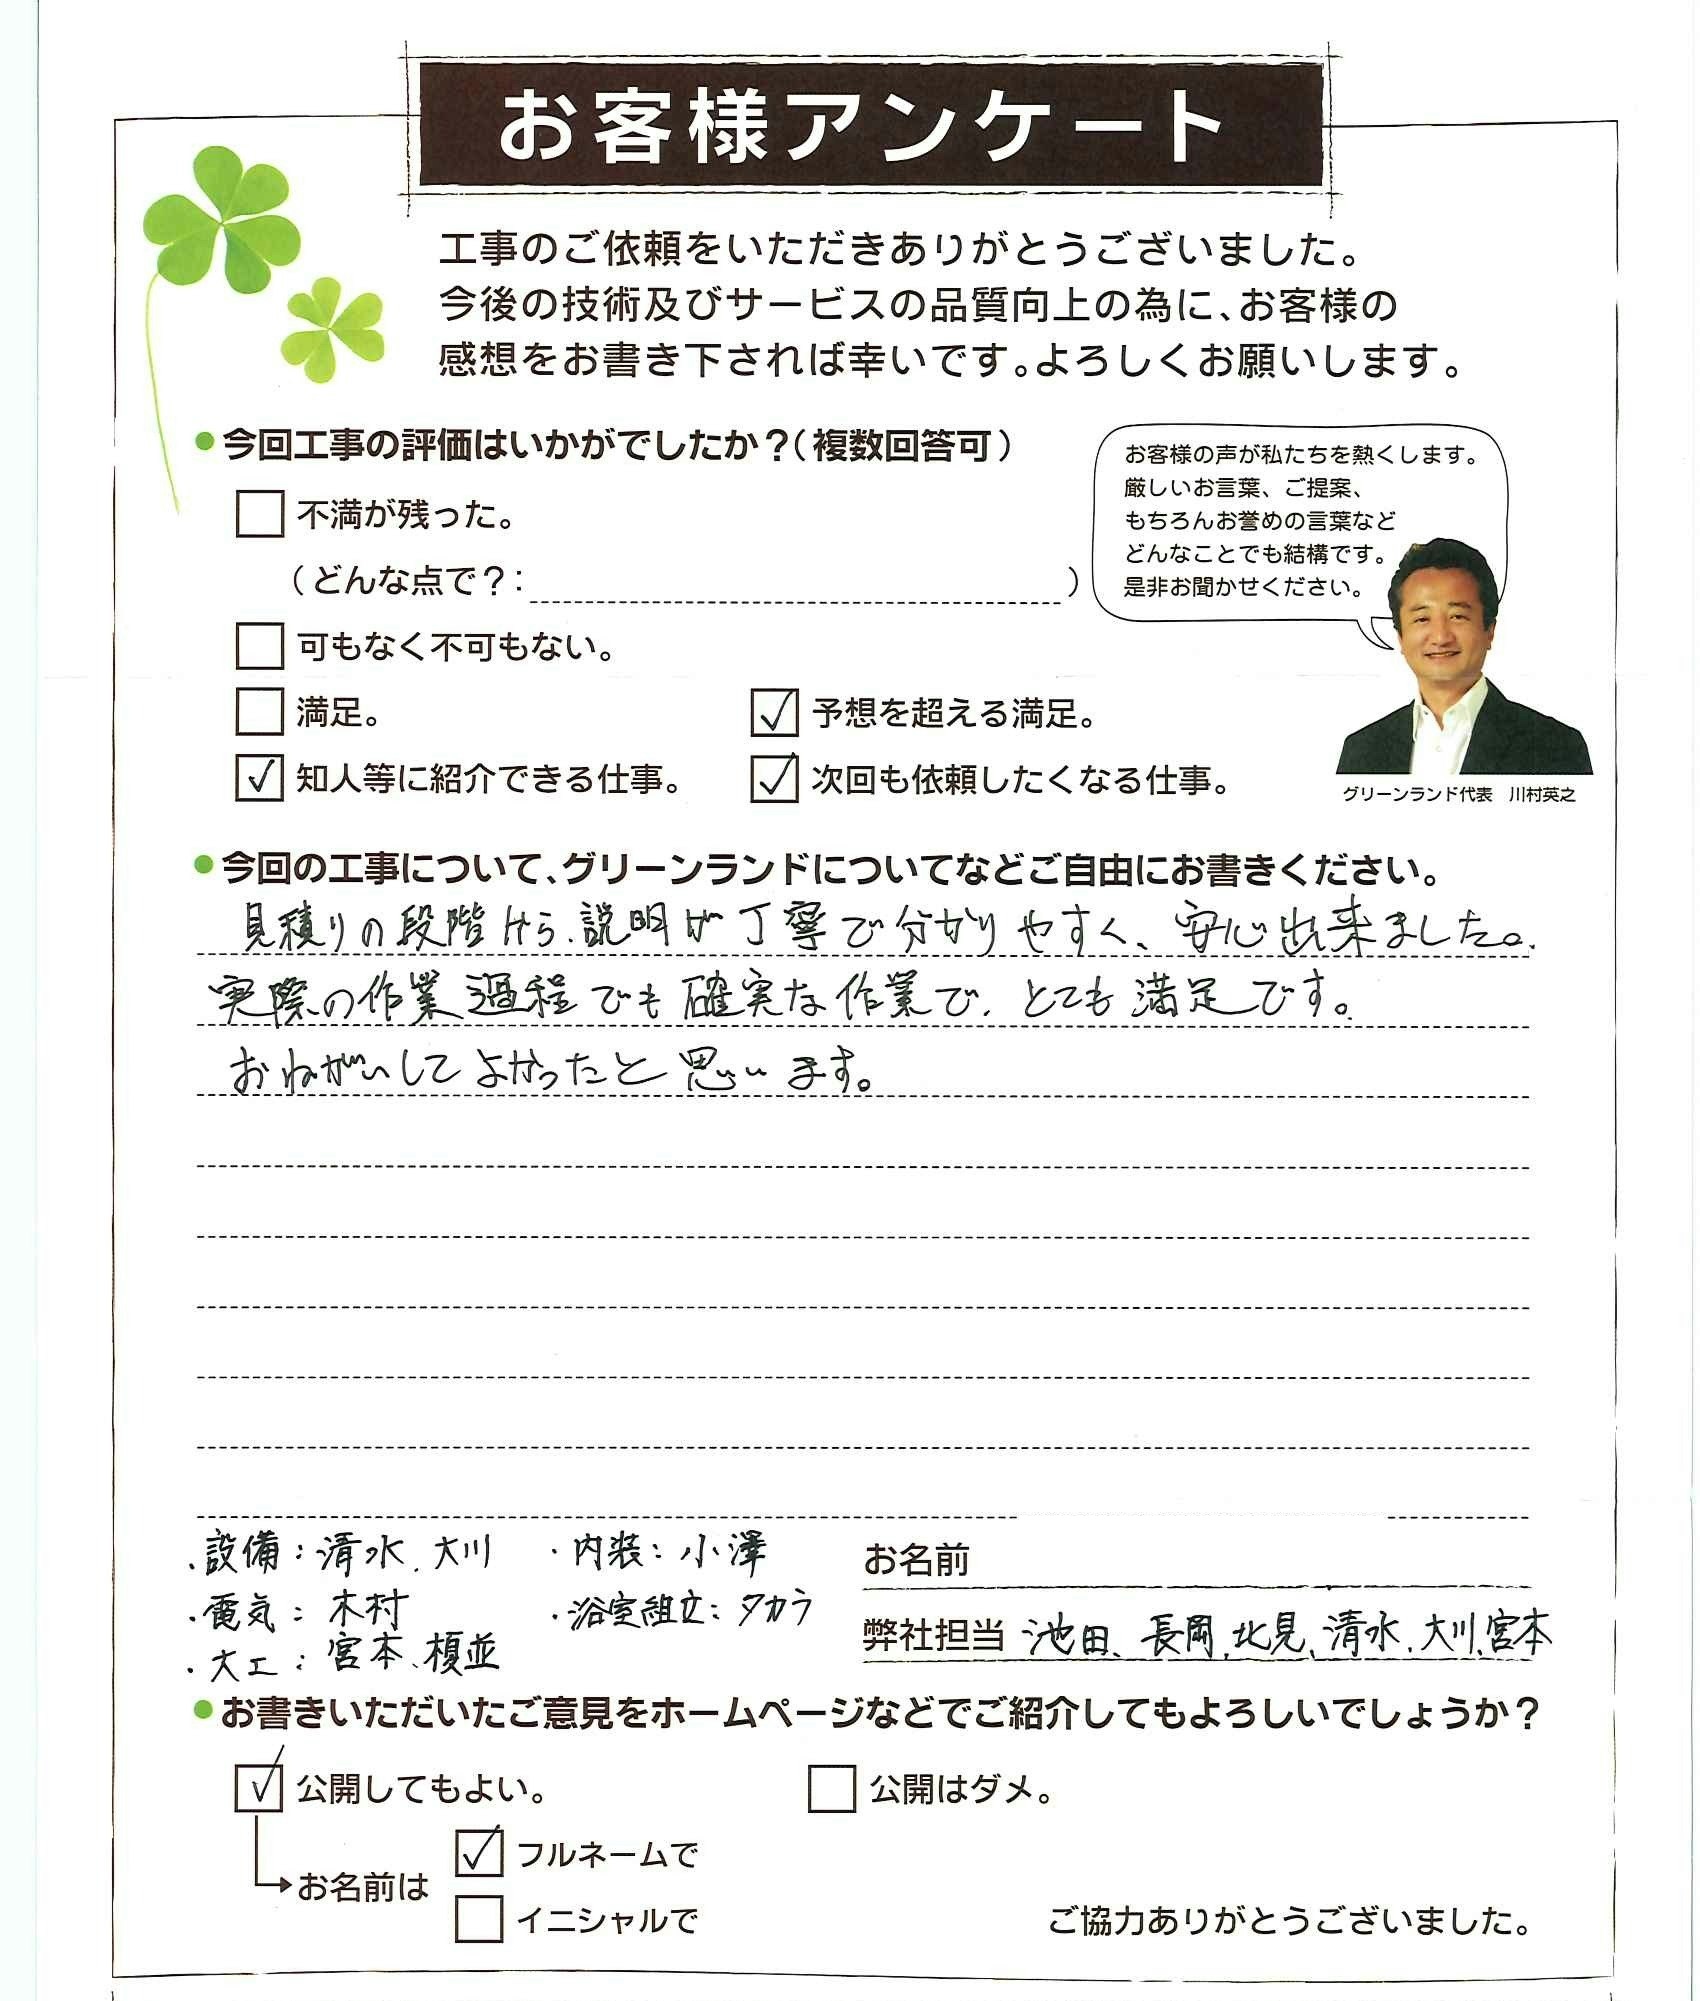 お客様アンケート
工事のご依頼をいただきありがとうございました。
今後の技術及びサービスの品質向上の為に、お客様の
感想をお書き下されば幸いです。よろしくお願いします。
●今回工事の評価はいかがでしたか?(複数回答可)
不満が残った。
(どんな点で?: )
可もなく不可もない。
満足。
✓ 予想を超える満足。
✓ 知人等に紹介できる仕事。
✓ 次回も依頼したくなる仕事。
お客様の声が私たちを熱くします。
厳しいお言葉、ご提案、
もちろんお誉めの言葉など
どんなことでも結構です。
是非お聞かせください。
グリーンランド代表 川村英之
●今回の工事について、グリーンランドについてなどご自由にお書きください。
見積りの段階から、説明が丁寧で分かりやすく、安心出来ました。
実際の作業過程でも確実な作業で、とても満足です。
おねがいしてよかったと思います。
・設備:清水、大川
・内装:小澤
・電気:木村
・浴室組立:タカラ
・大工:宮本、榎並
お名前
弊社担当 池田、長岡、北見、清水、大川、宮本
●お書きいただいたご意見をホームページなどでご紹介してもよろしいでしょうか?
✓ 公開してもよい。
公開はダメ。
お名前は
✓ フルネームで
イニシャルで
ご協力ありがとうございました。